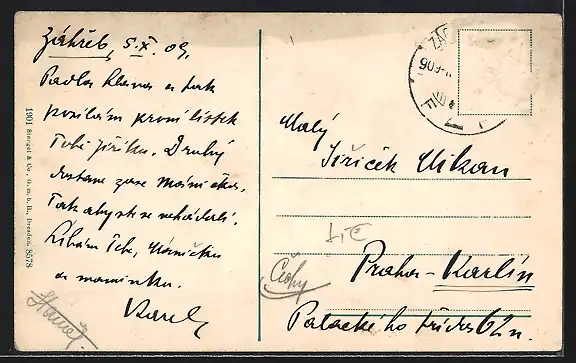 Záhřeb, 5.X.09.
Padla hlava a tak
posílám první lístek
Tobě Jiříku. Druhý
dostane zase Mánička.
Tak abyste se nehádali.
Líbám Tebe, Máničku
a maminku.
Karel
1901 Stengel & Co., G. m. b. H., Dresden. 8578
ZAG
909
Malý
Jiříček Mikan
Praha-Karlín
Čechy
Palackého třída 62n.